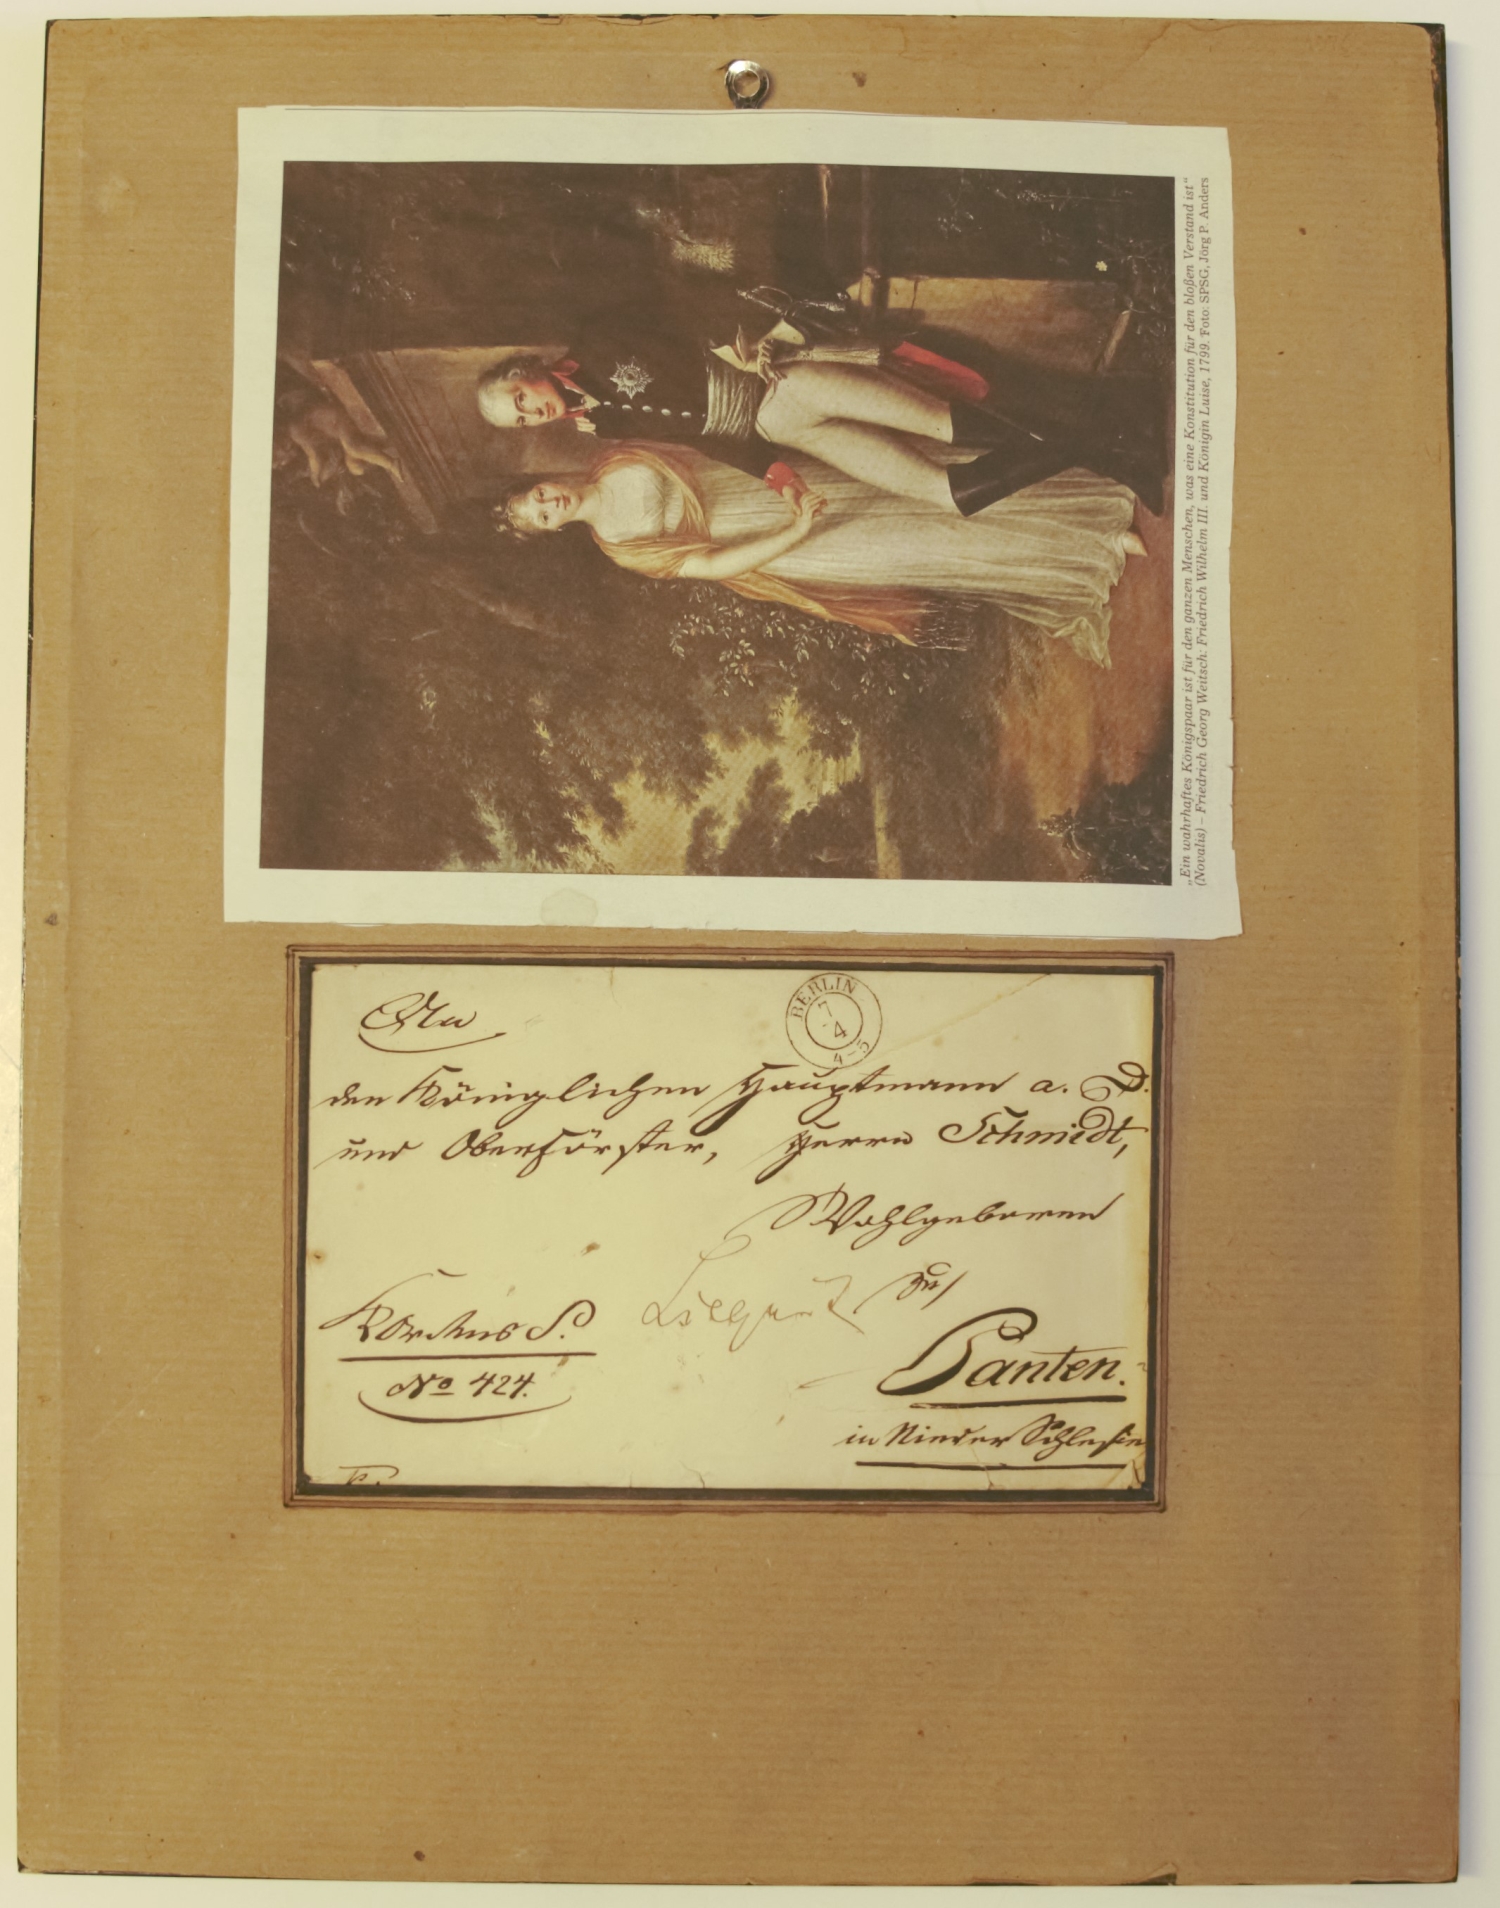 „Ein wahrhaftes Königspaar ist für den ganzen Menschen, was eine Konstitution für den bloßen Verstand ist“
(Novalis) – Friedrich Georg Weitsch: Friedrich Wilhelm III. und Königin Luise, 1799. Foto: SPSG, Jörg P. Anders
An
BERLIN
7
4
4-5
den Königlichen Hauptmann a. D.
und Oberförster, Herrn Schmidt,
Wohlgeboren
Liegnitz
zu
Panten.
in Nieder Schlesien
No 424.